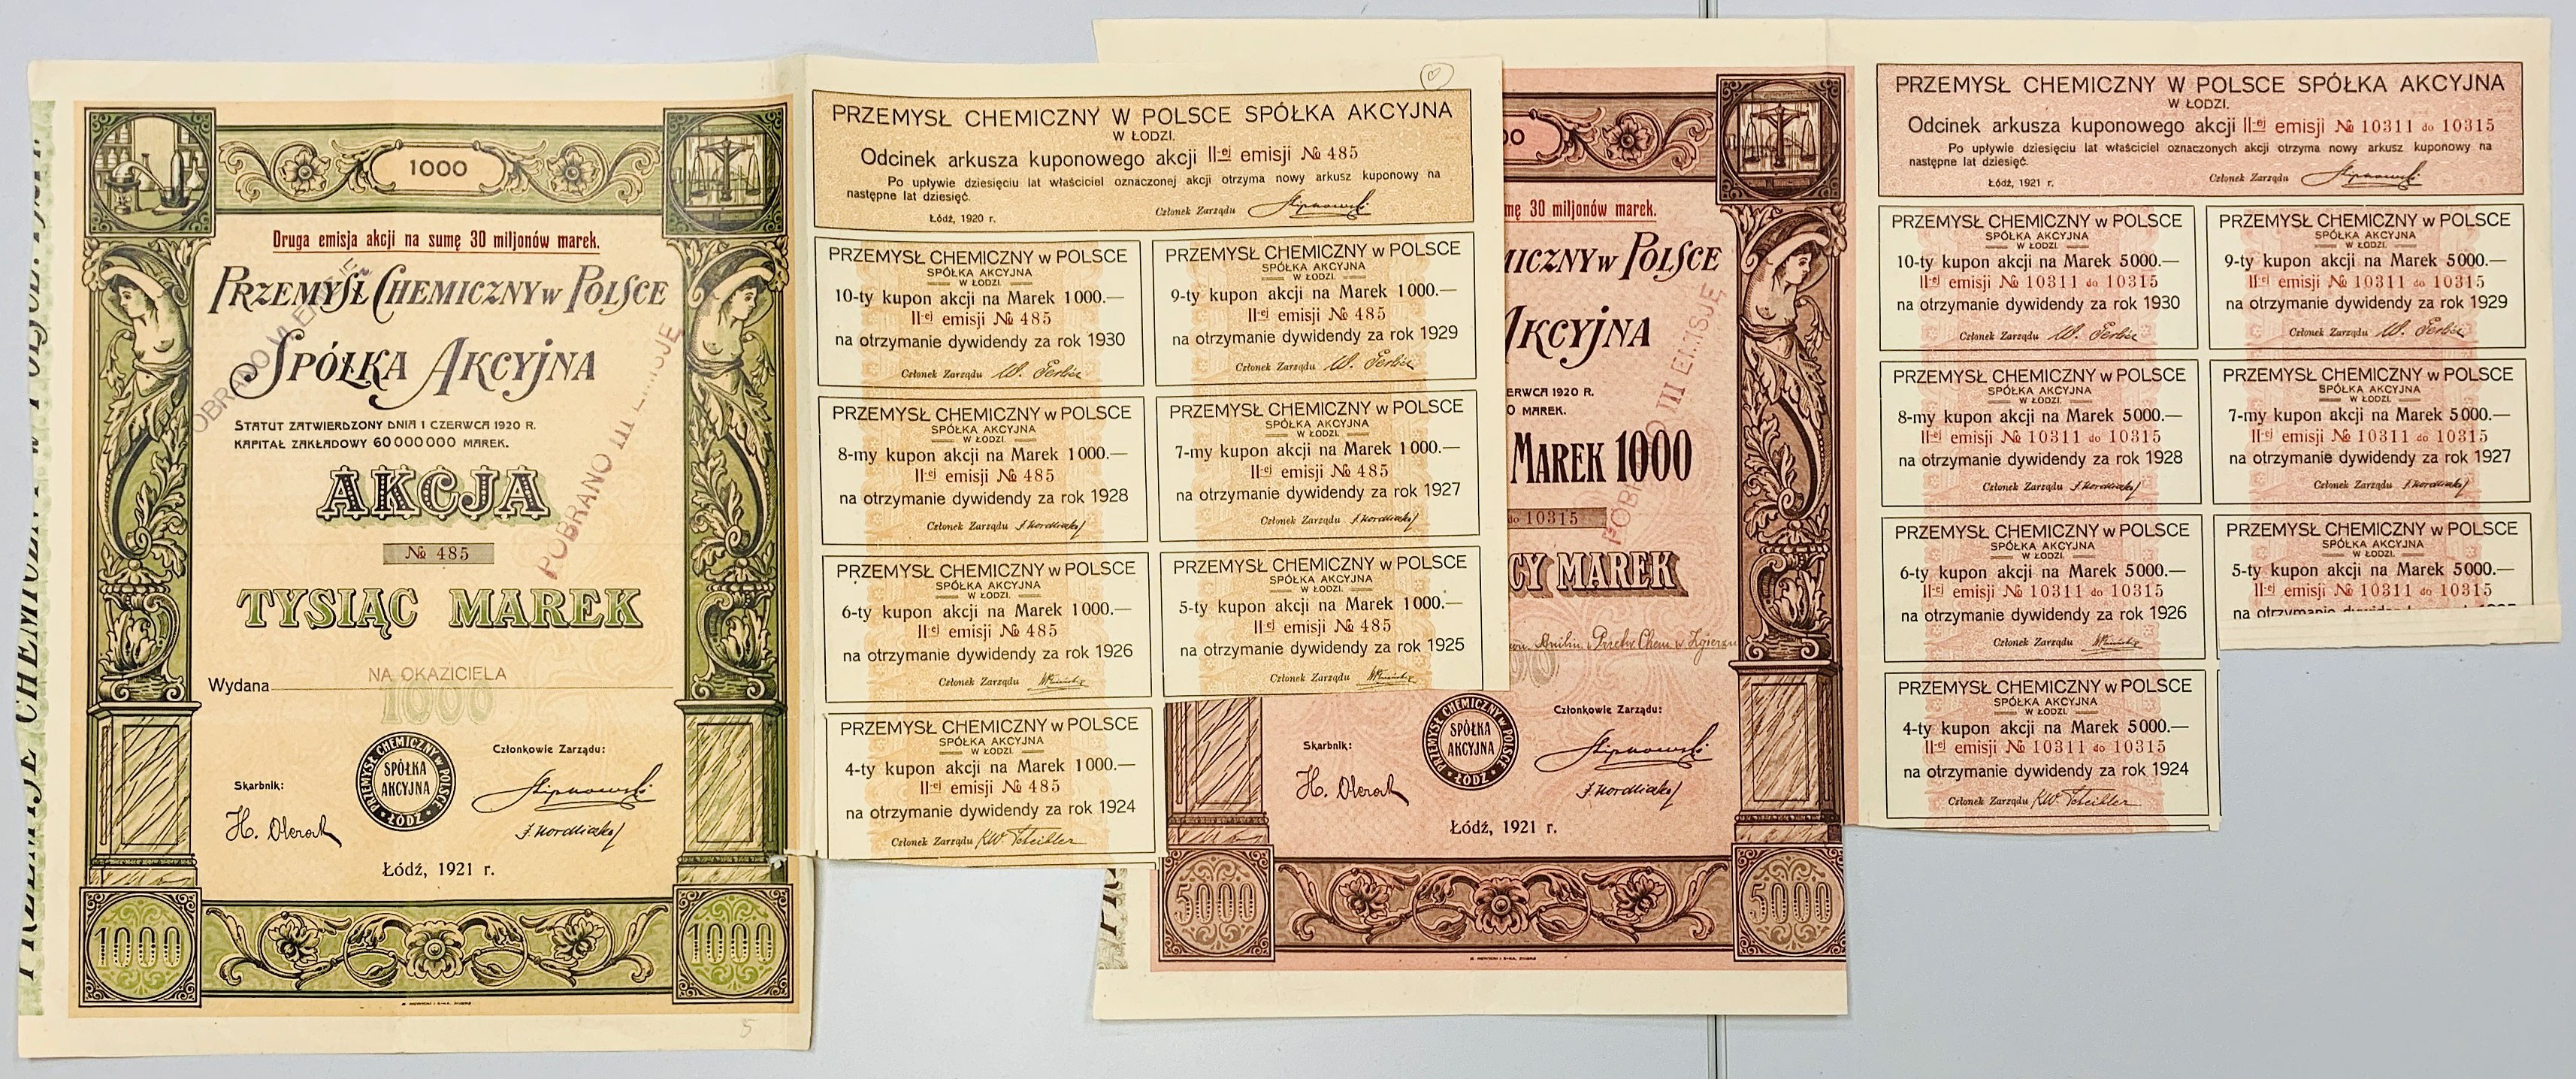 1000
Druga emisja akcji na sumę 30 miljonów marek.
PRZEMYSŁ CHEMICZNY w POLSCE
SPÓŁKA AKCYJNA
STATUT ZATWIERDZONY DNIA 1 CZERWCA 1920 R.
KAPITAŁ ZAKŁADOWY 60 000 000 MAREK.
AKCJA
№ 485
TYSIĄC MAREK
NA OKAZICIELA
Wydana
1000
POBRANO III
Członkowie Zarządu:
Skarbnik:
PRZEMYSŁ CHEMICZNY w POLSCE
SPÓŁKA
AKCYJNA
ŁÓDŹ
Łódź, 1921 r.
1000
1000
5
PRZEMYSŁ CHEMICZNY W POLSCE SPÓŁKA AKCYJNA
W ŁODZI.
Odcinek arkusza kuponowego akcji II-ej emisji № 485
Po upływie dziesięciu lat właściciel oznaczonej akcji otrzyma nowy arkusz kuponowy na
następne lat dziesięć.
Łódź, 1920 r.
Członek Zarządu
PRZEMYSŁ CHEMICZNY w POLSCE
SPÓŁKA AKCYJNA
W ŁODZI.
10-ty kupon akcji na Marek 1000.—
II-ej emisji № 485
na otrzymanie dywidendy za rok 1930
Członek Zarządu
PRZEMYSŁ CHEMICZNY w POLSCE
SPÓŁKA AKCYJNA
W ŁODZI.
9-ty kupon akcji na Marek 1000.—
II-ej emisji № 485
na otrzymanie dywidendy za rok 1929
Członek Zarządu
PRZEMYSŁ CHEMICZNY w POLSCE
SPÓŁKA AKCYJNA
W ŁODZI.
8-my kupon akcji na Marek 1000.—
II-ej emisji № 485
na otrzymanie dywidendy za rok 1928
Członek Zarządu
PRZEMYSŁ CHEMICZNY w POLSCE
SPÓŁKA AKCYJNA
W ŁODZI.
7-my kupon akcji na Marek 1000.—
II-ej emisji № 485
na otrzymanie dywidendy za rok 1927
Członek Zarządu
PRZEMYSŁ CHEMICZNY w POLSCE
SPÓŁKA AKCYJNA
W ŁODZI.
6-ty kupon akcji na Marek 1000.—
II-ej emisji № 485
na otrzymanie dywidendy za rok 1926
Członek Zarządu
PRZEMYSŁ CHEMICZNY w POLSCE
SPÓŁKA AKCYJNA
W ŁODZI.
5-ty kupon akcji na Marek 1000.—
II-ej emisji № 485
na otrzymanie dywidendy za rok 1925
Członek Zarządu
PRZEMYSŁ CHEMICZNY w POLSCE
SPÓŁKA AKCYJNA
W ŁODZI.
4-ty kupon akcji na Marek 1000.—
II-ej emisji № 485
na otrzymanie dywidendy za rok 1924
Członek Zarządu KW. Scheibler
30 miljonów marek.
w POLSCE
AKCYJNA
1920 R.
MAREK.
MAREK 1000
do 10315
MAREK
III EMISJĘ
Członkowie Zarządu:
Skarbnik:
PRZEMYSŁ CHEMICZNY w POLSCE
SPÓŁKA
AKCYJNA
ŁÓDŹ
Łódź, 1921 r.
5000
5000
PRZEMYSŁ CHEMICZNY W POLSCE SPÓŁKA AKCYJNA
W ŁODZI.
Odcinek arkusza kuponowego akcji II-ej emisji № 10311 do 10315
Po upływie dziesięciu lat właściciel oznaczonych akcji otrzyma nowy arkusz kuponowy na
następne lat dziesięć.
Łódź, 1921 r.
Członek Zarządu
PRZEMYSŁ CHEMICZNY w POLSCE
SPÓŁKA AKCYJNA
W ŁODZI.
10-ty kupon akcji na Marek 5000.—
II-ej emisji № 10311 do 10315
na otrzymanie dywidendy za rok 1930
Członek Zarządu
PRZEMYSŁ CHEMICZNY w POLSCE
SPÓŁKA AKCYJNA
W ŁODZI.
9-ty kupon akcji na Marek 5000.—
II-ej emisji № 10311 do 10315
na otrzymanie dywidendy za rok 1929
Członek Zarządu
PRZEMYSŁ CHEMICZNY w POLSCE
SPÓŁKA AKCYJNA
W ŁODZI.
8-my kupon akcji na Marek 5000.—
II-ej emisji № 10311 do 10315
na otrzymanie dywidendy za rok 1928
Członek Zarządu
PRZEMYSŁ CHEMICZNY w POLSCE
SPÓŁKA AKCYJNA
W ŁODZI.
7-my kupon akcji na Marek 5000.—
II-ej emisji № 10311 do 10315
na otrzymanie dywidendy za rok 1927
Członek Zarządu
PRZEMYSŁ CHEMICZNY w POLSCE
SPÓŁKA AKCYJNA
W ŁODZI.
6-ty kupon akcji na Marek 5000.—
II-ej emisji № 10311 do 10315
na otrzymanie dywidendy za rok 1926
Członek Zarządu
PRZEMYSŁ CHEMICZNY w POLSCE
SPÓŁKA AKCYJNA
W ŁODZI.
5-ty kupon akcji na Marek 5000.—
II-ej emisji № 10311 do 10315
na otrzymanie
PRZEMYSŁ CHEMICZNY w POLSCE
SPÓŁKA AKCYJNA
W ŁODZI.
4-ty kupon akcji na Marek 5000.—
II-ej emisji № 10311 do 10315
na otrzymanie dywidendy za rok 1924
Członek Zarządu KW. Scheibler